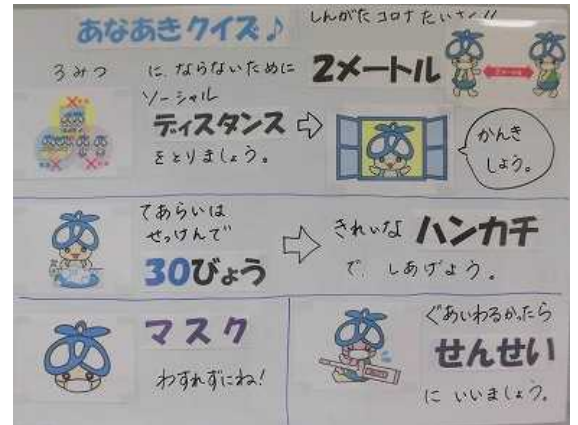 あなあきクイズ♪
しんがたコロナたいさく!!
3みつ
に ならないために
ソーシャル
ディスタンス
をとりましょう。
2メートル
かんき
しよう。
てあらいは
せっけんで
30びょう
きれいな ハンカチ
で しあげよう。
マスク
わすれずにね!
ぐあいわるかったら
せんせい
に いいましょう。